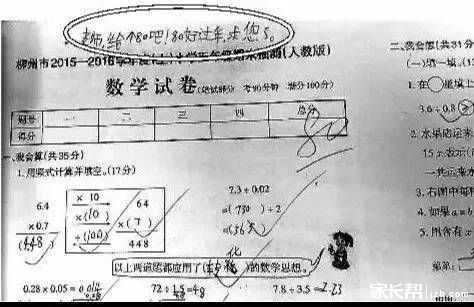 老师,给个80吧!80好过年,求您了。
柳州市2015—2016学年度
(人教版)
数学试卷(考试部分 考90分钟 满分100分)
题号 一 二 三 四 总分
得分
80
一、我会算(共35分)
1.用竖式计算并填空。(17分)
6.4
×0.7
4.48
×10
×(10)
÷(100)
64
×(7)
448
7.3÷0.02
=(730)÷2
=(365)
以上两道题都应用了(转化)的数学思想。
0.28×0.05=0.014
72÷1.5=48
7.8÷3.5≈2.23
二、我会想(共31分)
(一)填一填。(13
1.在○里填上
3.6÷0.8
2.水果店运来
15元表示(
一共运来水
3.右图中每
4.如果a=
5.用含有x
第第:
家长帮